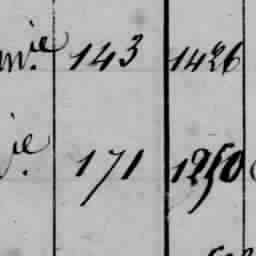 m.ie 143 1426
ie. 171 1250